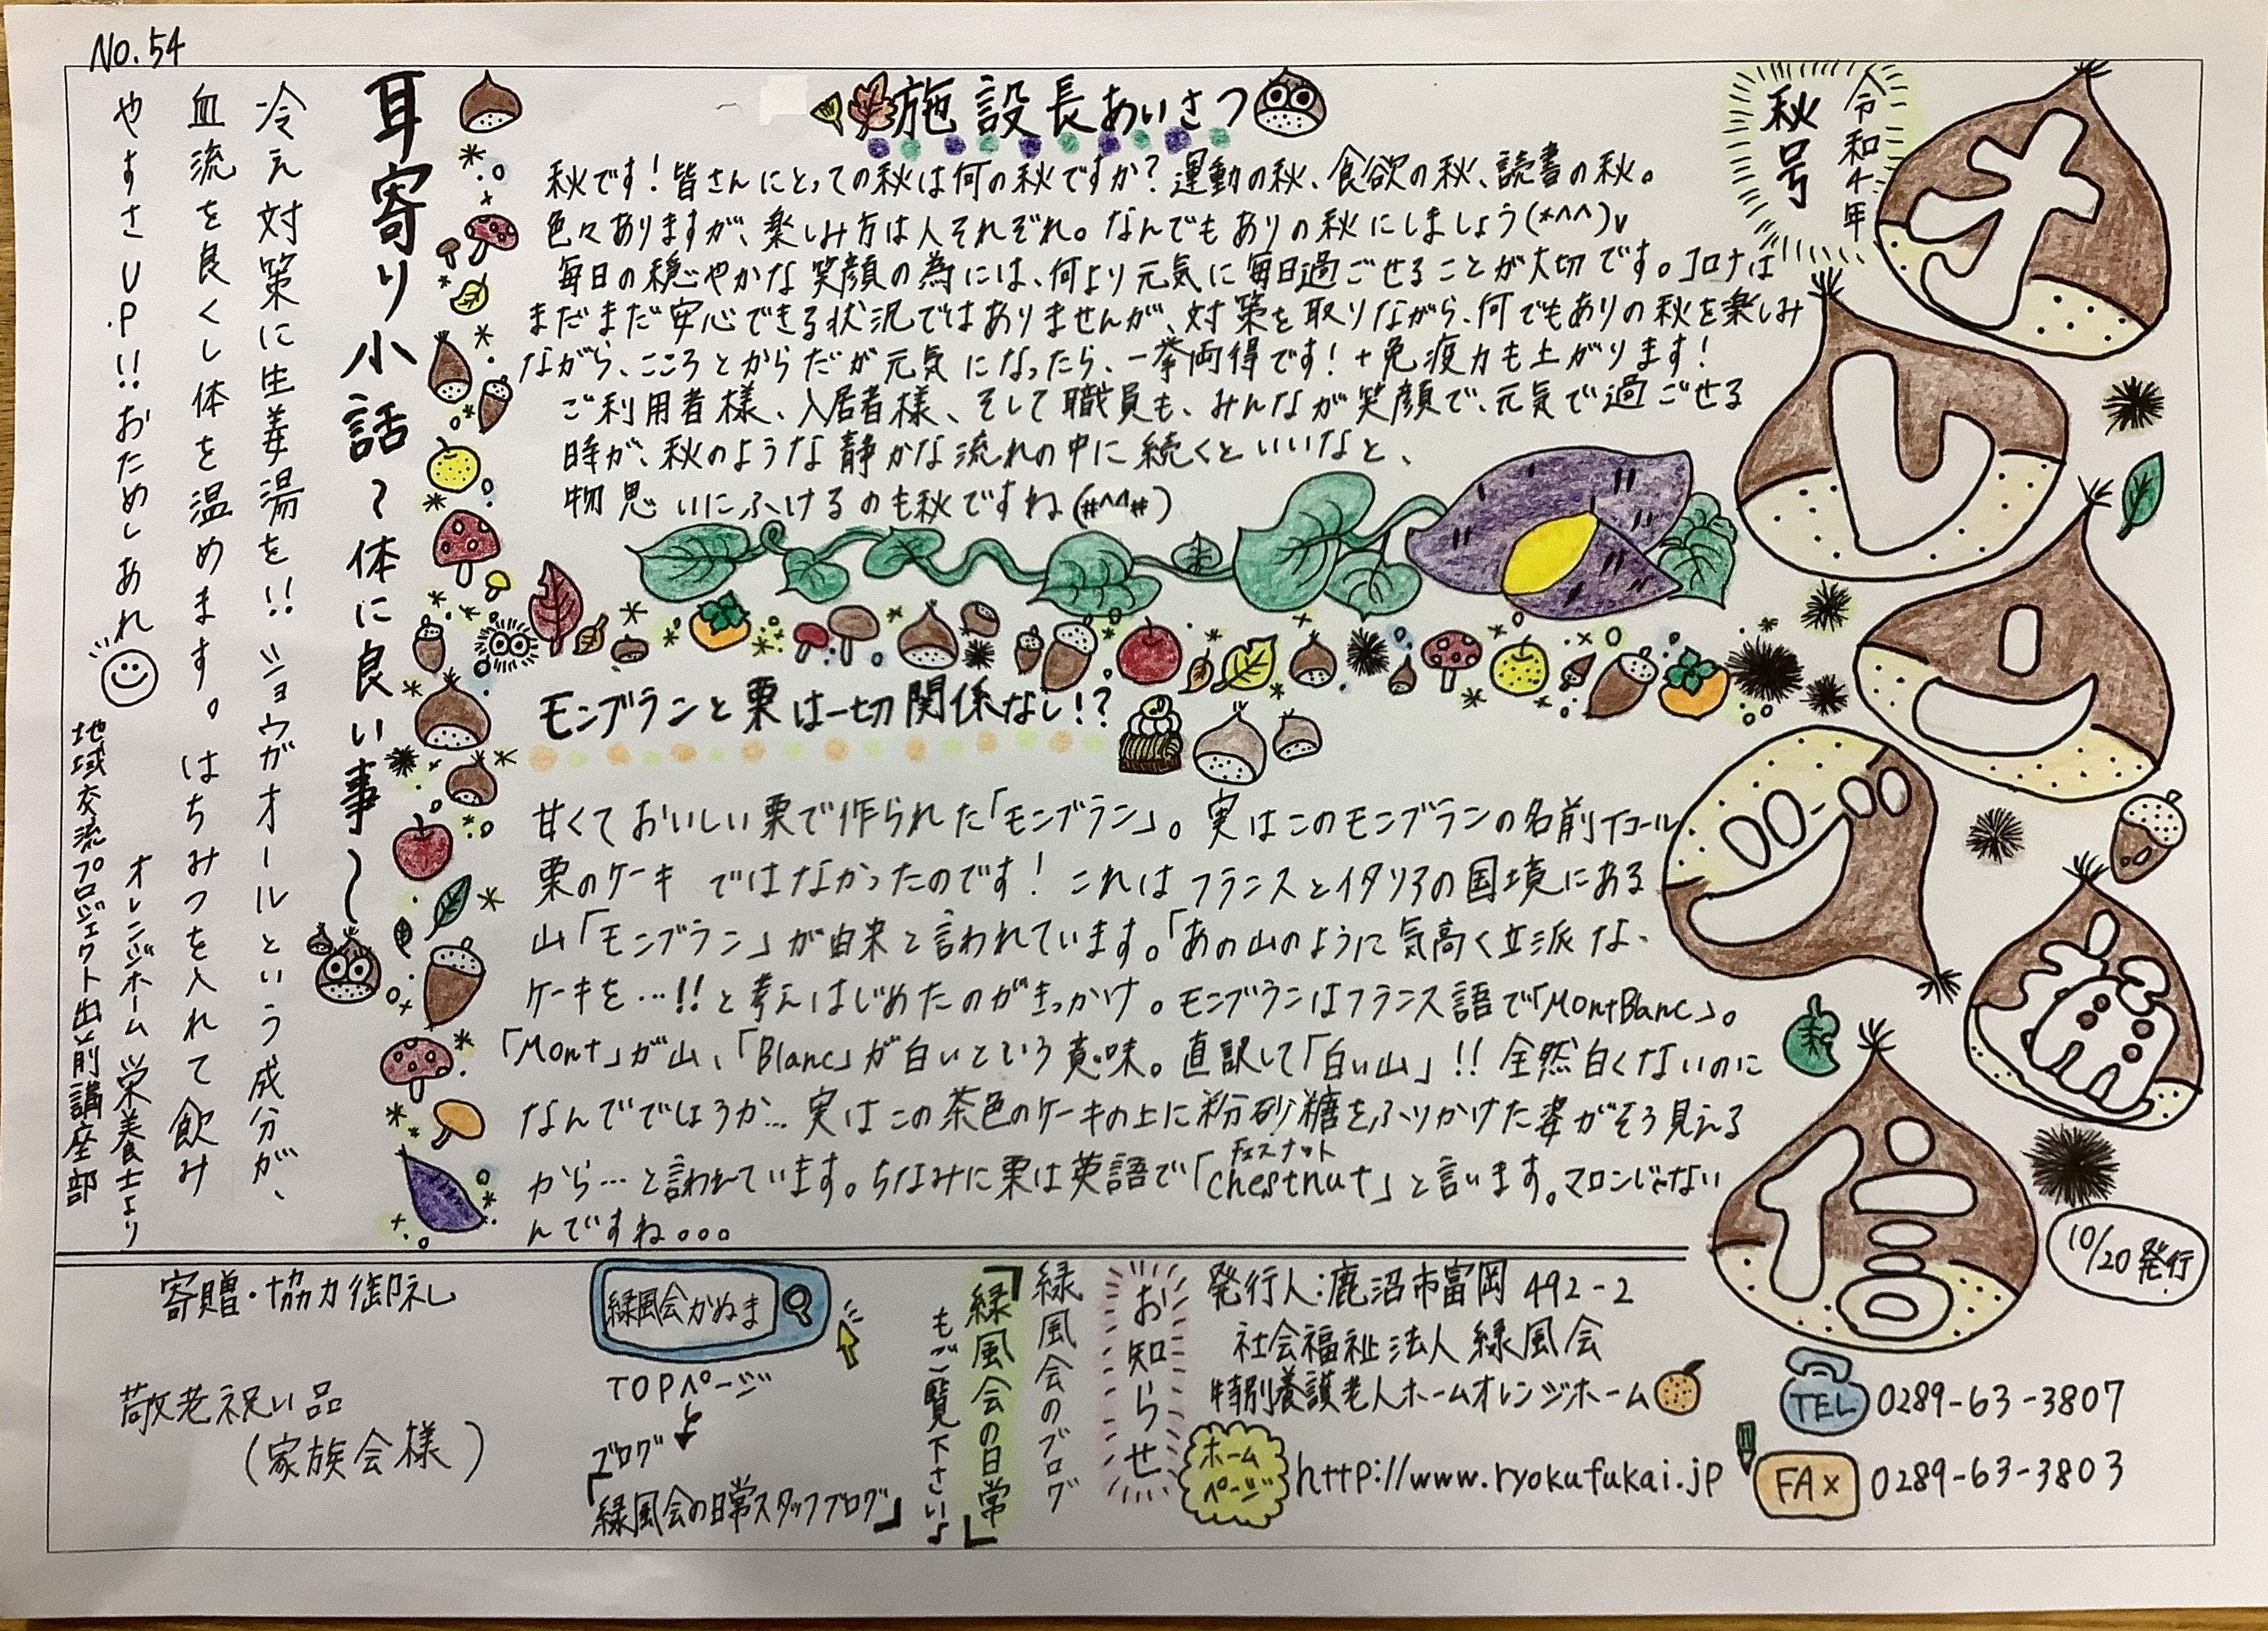 No.54
オレンジ通信
令和4年
秋号
10/20発行
施設長あいさつ
秋です！皆さんにとっての秋は何の秋ですか？運動の秋、食欲の秋、読書の秋。
色々ありますが、楽しみ方は人それぞれ。なんでもありの秋にしましょう(*^^)v
毎日の穏やかな笑顔の為には、何より元気に毎日過ごせることが大切です。コロナは
まだまだ安心できる状況ではありませんが、対策を取りながら、何でもありの秋を楽しみ
ながら、こころとからだが元気になったら、一挙両得です！+免疫力も上がります！
ご利用者様、入居者様、そして職員も、みんなが笑顔で、元気で過ごせる
時が、秋のような静かな流れの中に続くといいなと、
物思いにふけるのも秋ですね(#^^#)
モンブランと栗は一切関係なし!?
甘くておいしい栗で作られた「モンブラン」。実はこのモンブランの名前イコール
栗のケーキ ではなかったのです！これはフランスとイタリアの国境にある
山「モンブラン」が由来と言われています。「あの山のように気高く立派な、
ケーキを…!!と考えはじめたのがきっかけ。モンブランはフランス語で「MontBlanc」。
「Mont」が山、「Blanc」が白いという意味。直訳して「白い山」!!全然白くないのに
なんででしょうか…実はこの茶色のケーキの上に粉砂糖をふりかけた姿がそう見える
から…と言われています。ちなみに栗は英語で「chestnut」と言います。マロンじゃない
チェスナット
んですね。。。
耳寄り小話～体に良い事～
冷え対策に生姜湯を!!ショウガオールという成分が、
血流を良くし体を温めます。はちみつを入れて飲み
やすさUP!!おためしあれ
オレンジホーム 栄養士より
地域交流プロジェクト出前講座部
発行人：鹿沼市富岡492-2
社会福祉法人 緑風会
特別養護老人ホームオレンジホーム
TEL 0289-63-3807
ホームページ http://www.ryokufukai.jp
FAX 0289-63-3803
お知らせ
緑風会のブログ
「緑風会の日常」
もご覧下さい♪
緑風会かぬま
TOPページ
ブログ
「緑風会の日常スタッフブログ」
寄贈・協力御礼
敬老祝い品
（家族会様）